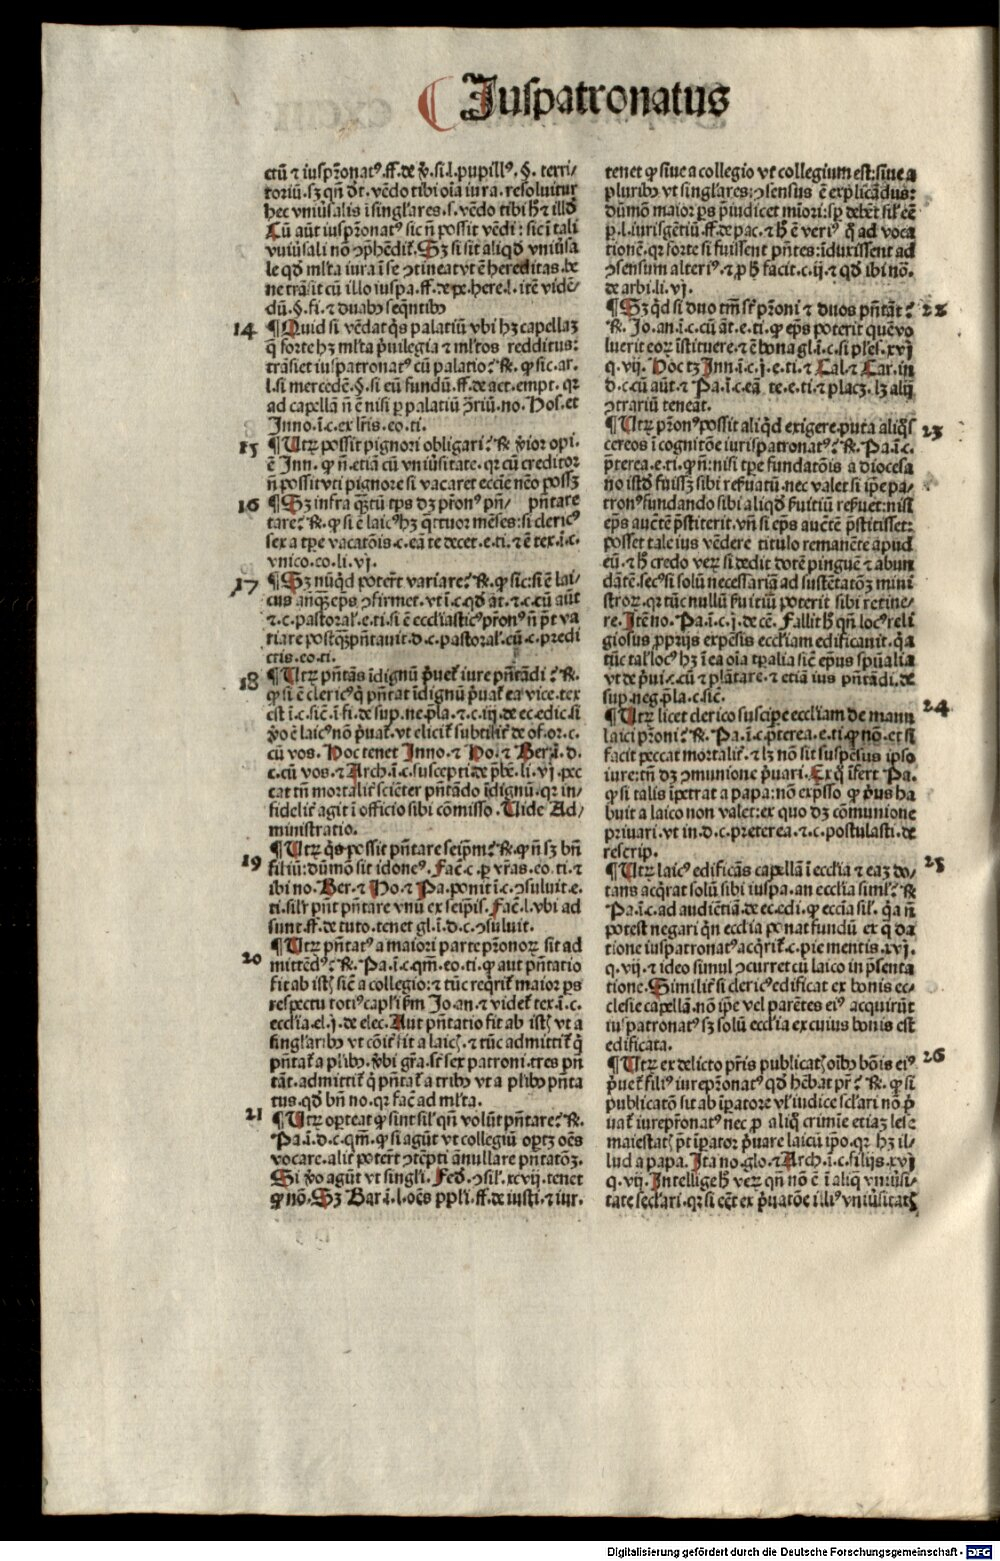 Juspatronatus
ctū ⁊ iusp̄ronatꝰ.ff.de v̄.si.l.pupillꝰ.§.terri/
toriū.sꝫ qn̄ dr̄.vēdo tibi oīa iura.resoluitur
hec vniūsalis ī singl'ares.s.vēdo tibi h̄ ⁊ illd̄
Cū aūt iusp̄ronatꝰ sic n̄ possit vēdi: sic ī tali
vniūsali nō ↄp̄hēdit̄.Sꝫ si sit aliqd̄ vniūsa
le qd̄ ml̄ta iura ī se ↄtineat vt ē hereditas.be
ne trāsit cū illo iuspa.ff.de pe.here.l.itē vidē/
dū.§.fi.⁊ duabꝰ seqn̄tibꝰ
14 ¶Quid si vēdat q̄s palatiū vbi hꝫ capellaꝫ
q̄ forte hꝫ ml̄ta p̄uilegia ⁊ ml̄tos redditus:
trāsiet iuspatronatꝰ cū palatio? R̄.ꝙ sic.ar.
l.si mercedē.§.si eū fundū.ff.de act.empt.qr
ad capellā n̄ ē nisi ꝑ palatiū ↄ̄riū.no.Hos.et
Inno.ī.c.ex lr̄is.eo.ti.
15 ¶Utꝝ possit pignori obligari? R̄ v̄ior opi.
ē Inn.ꝙ n̄.etiā cū vniūsitate.qr cū creditor
n̄ possit vti pignore si vacaret eccl̄ie nēo possꝫ
16 ¶Sꝫ infra q̄ꝫtū tp̄s dꝫ p̄ronꝰ pn̄/ pn̄tare
tare? R̄.ꝙ si ē laicꝰ hꝫ q̄ttuor mēses: si clericꝰ
sex a tp̄e vacatōis.c.eā te decet.e.ti.⁊ ē tex.ī.c.
vnico.eo.li.vj.
17 ¶Sꝫ nūqd̄ poter̄t variare? R̄.ꝙ sic: si ē lai/
cus an̄q̄ꝫ ep̄s ↄfirmet.vt ī.c.qd̄ āt.⁊.c.cū aūt
⁊.c.pastoral'.e.ti.si ē eccl̄iasticꝰ p̄ronꝰ n̄ p̄t va
riare postq̄ꝫ pn̄tauit.d.c.pastoral'.cū.c.predi
ctis.eo.ti.
18 ¶Utꝝ pn̄tās īdignū p̄uet̄ iure pn̄tādi? R̄.
ꝙ si ē clericꝰ q̄ pn̄tat īdignū p̄uat̄ ea vice.tex
est ī.c.sic̄ ī fi.de sup.ne.p̄la.⁊.c.iij.de ec.edic.si
v̄o ē laicꝰ nō p̄uat̄.vt elicit̄ subtilit̄ de of.or.c.
cū vos.Hoc tenet Inno.⁊ Ho.⁊ Ber.ī.d.
c.cū vos.⁊ Arch.ī.c.suscepti.de p̄be.li.vj.pec
cat tn̄ mortalit̄ sciēter pn̄tādo īdignū.qr in/
fidelit̄ agit ī officio sibi cōmisso.Uide Ad/
ministratio.
19 ¶Utꝝ q̄s possit pn̄tare seip̄m? R̄.ꝙ n̄ sꝫ bn̄
filiū: dūmō sit idoneꝰ.Fac̄.c.ꝑ vr̄as.eo.ti.⁊
ibi no.Ber.⁊ Ho.⁊ Pa.ponit ī.c.ↄsuluit.e.
ti.sil'r pn̄t pn̄tare vnū ex seip̄is.Fac̄.l.vbi ad
sunt.ff.de tuto.tenet gl.ī.d.c.ↄsuluit.
20 ¶Utꝝ pn̄tatꝰ a maiori parte p̄ronoꝝ sit ad
mittēdꝰ? R̄.Pa.ī.c.qm̄.eo.ti.ꝙ aut pn̄tatio
fit ab istꝭ sic̄ a collegio: ⁊ tūc req̄rit̄ maior ps
respectu totiꝰ capl'i fm̄ Jo.an.⁊ videt̄ tex.ī.c.
eccl̄ia.el.j.de elec.Aut pn̄tatio fit ab istꝭ vt a
singl'aribꝰ vt cōit̄ fit a laicꝭ.⁊ tūc admittit̄ q̄
pn̄tat̄ a pl'ibꝰ.v̄bi gr̄a.st̄ sex patroni.tres pn̄
tāt.admittit̄ q̄ pn̄tat̄ a tribꝰ vt a pl'ibꝰ pn̄ta
tus.qd̄ bn̄ no.qr fac̄ ad ml̄ta.
21 ¶Utꝝ oꝑteat ꝙ sint sil' qn̄ volūt pn̄tare? R̄.
Pa.ī.d.c.qm̄.ꝙ si agūt vt collegiū oportꝫ oēs
vocare.alit̄ poter̄t ↄtēpti ānullare pn̄tatōꝫ.
Si v̄o agūt vt singl'i.Fed.ↄsil'.xcvij.tenet
ꝙ nō.Sꝫ Bar.ī.l.oēs ppl'i.ff.de iusti.⁊ iur.
tenet ꝙ siue a collegio vt collegium est: siue a
pluribꝰ vt singl'ares: ↄsensus ē explicādus:
dūmō maior ps p̄iudicet mīori: sp̄ debēt sil' eē
ꝑ.l.iurisgētiū.ff.de pac.⁊ h̄ ē veriꝰ q̄ ad voca
tionē.qr forte si fuissent pn̄tes: īduxissent ad
ↄsensum alteriꝰ.⁊ ꝓ h̄ facit.c.ij.⁊ qd̄ ibi nō.
de arbi.li.vj.
22 ¶Sꝫ qd̄ si duo tm̄ st̄ p̄roni ⁊ duos pn̄tāt?
R̄.Jo.an.ī.c.cū āt.e.ti.ꝙ ep̄s poterit quēvo
luerit eoꝝ īstituere.⁊ ē bona gl.ī.c.si pl'es.xvj
q.vij.Hoc tꝫ Inn.ī.c.j.e.ti.⁊ Cal.⁊ Car.in
d.c.cū aūt.⁊ Pa.ī.c.eā te.e.ti.⁊ placꝫ.lꝫ alij
ↄtrariū teneāt.
23 ¶Utꝝ p̄ronꝰ possit aliqd̄ exigere.puta aliqs
cereos ī cognitōe iurispatronatꝰ? R̄.Pa.ī.c.
p̄terea.e.ti.ꝙ n̄: nisi tp̄e fundatōis a diocesa
no istd̄ fuissꝫ sibi res̄uatū.nec valet si ip̄e pa/
tronꝰ fundando sibi aliqd̄ s̄uitiū res̄uet: nisi
ep̄s auctē p̄stiterit.vn̄ si ep̄s auctē p̄stitisset:
posset tale ius vēdere titulo remanēte apud
eū.⁊ h̄ credo veꝝ si dedit dotē pinguē ⁊ abun
dātē.secꝰ si solū necessariā ad sustētatōꝫ mini
stroꝝ.qr tūc nullū s̄uitiū poterit sibi retine/
re.Itē no.Pa.ī.c.j.de cē.Fallit h̄ qn̄ locꝰ reli
giosus ꝓprijs expēsis eccl̄iam edificauit.q̄a
tūc tal' locꝰ hꝫ ī ea oīa tp̄alia sic̄ ep̄us spūalia
vt de p̄ui.c.cū ⁊ plātare.⁊ etiā ius pn̄tādi.de
sup.neg.p̄la.c.sic̄.
24 ¶Utꝝ licet clerico suscipe eccl̄iam de manu
laici p̄roni? R̄.Pa.ī.c.p̄terea.e.ti.ꝙ nō.et si
facit peccat mortalit̄.⁊ lꝫ nō sit suspēsus ipso
iure: tn̄ dꝫ ↄmunione p̄uari.Ex q̄ īfert Pa.
ꝙ si talis īpetrat a papa: nō exp̄sso ꝙ p̄us ha
buit a laico non valet: ex quo dꝫ cōmunione
priuari.vt in.d.c.preterea.⁊.c.postulasti.de
rescrip.
25 ¶Utꝝ laicꝰ edificās capellā ī eccl̄ia ⁊ eaꝫ do/
tans acq̄rat solū sibi iuspa.an eccl̄ia siml'? R̄
Pa.ī.c.ad audiētiā.de ec.edi.ꝙ eccl̄ia sil'.q̄a n̄
potest negari q̄n eccl̄ia ponat fundū ex q̄ da
tione iuspatronatꝰ acq̄rit̄.c.pie mentis.xvj.
q.vij.⁊ ideo simul ↄcurret cū laico in p̄senta
tione.Similit̄ si clericꝰ edificat ex bonis ec/
clesie capellā.nō ip̄e vel parētes eiꝰ acquirūt
iuspatronatꝰ sꝫ solū eccl̄ia ex cuius bonis est
edificata.
26 ¶Utꝝ ex delicto pr̄is publicatꝭ oībꝰ bōis eiꝰ
p̄uet̄ filiꝰ iurep̄ronatꝰ qd̄ hēbat pr̄? R̄.ꝙ si
publicatō sit ab īꝑatore vl' iudice scl'ari nō p̄
uat̄ iurep̄ronatꝰ nec ꝓ aliq̄ crimīe etiaꝫ lese
maiestatꝭ p̄t īꝑator p̄uare laicū ip̄o.qr hꝫ il/
lud a papa.Ita no.glo.⁊ Arch.ī.c.filijs.xvj
q.vij.Intellige h̄ veꝝ qn̄ nō ē ī aliq̄ vniūsi/
tate secl'ari.qr si eēt ex p̄uatōe illiꝰ vniūsitatꝭ
Digitalisierung gefördert durch die Deutsche Forschungsgemeinschaft - DFG